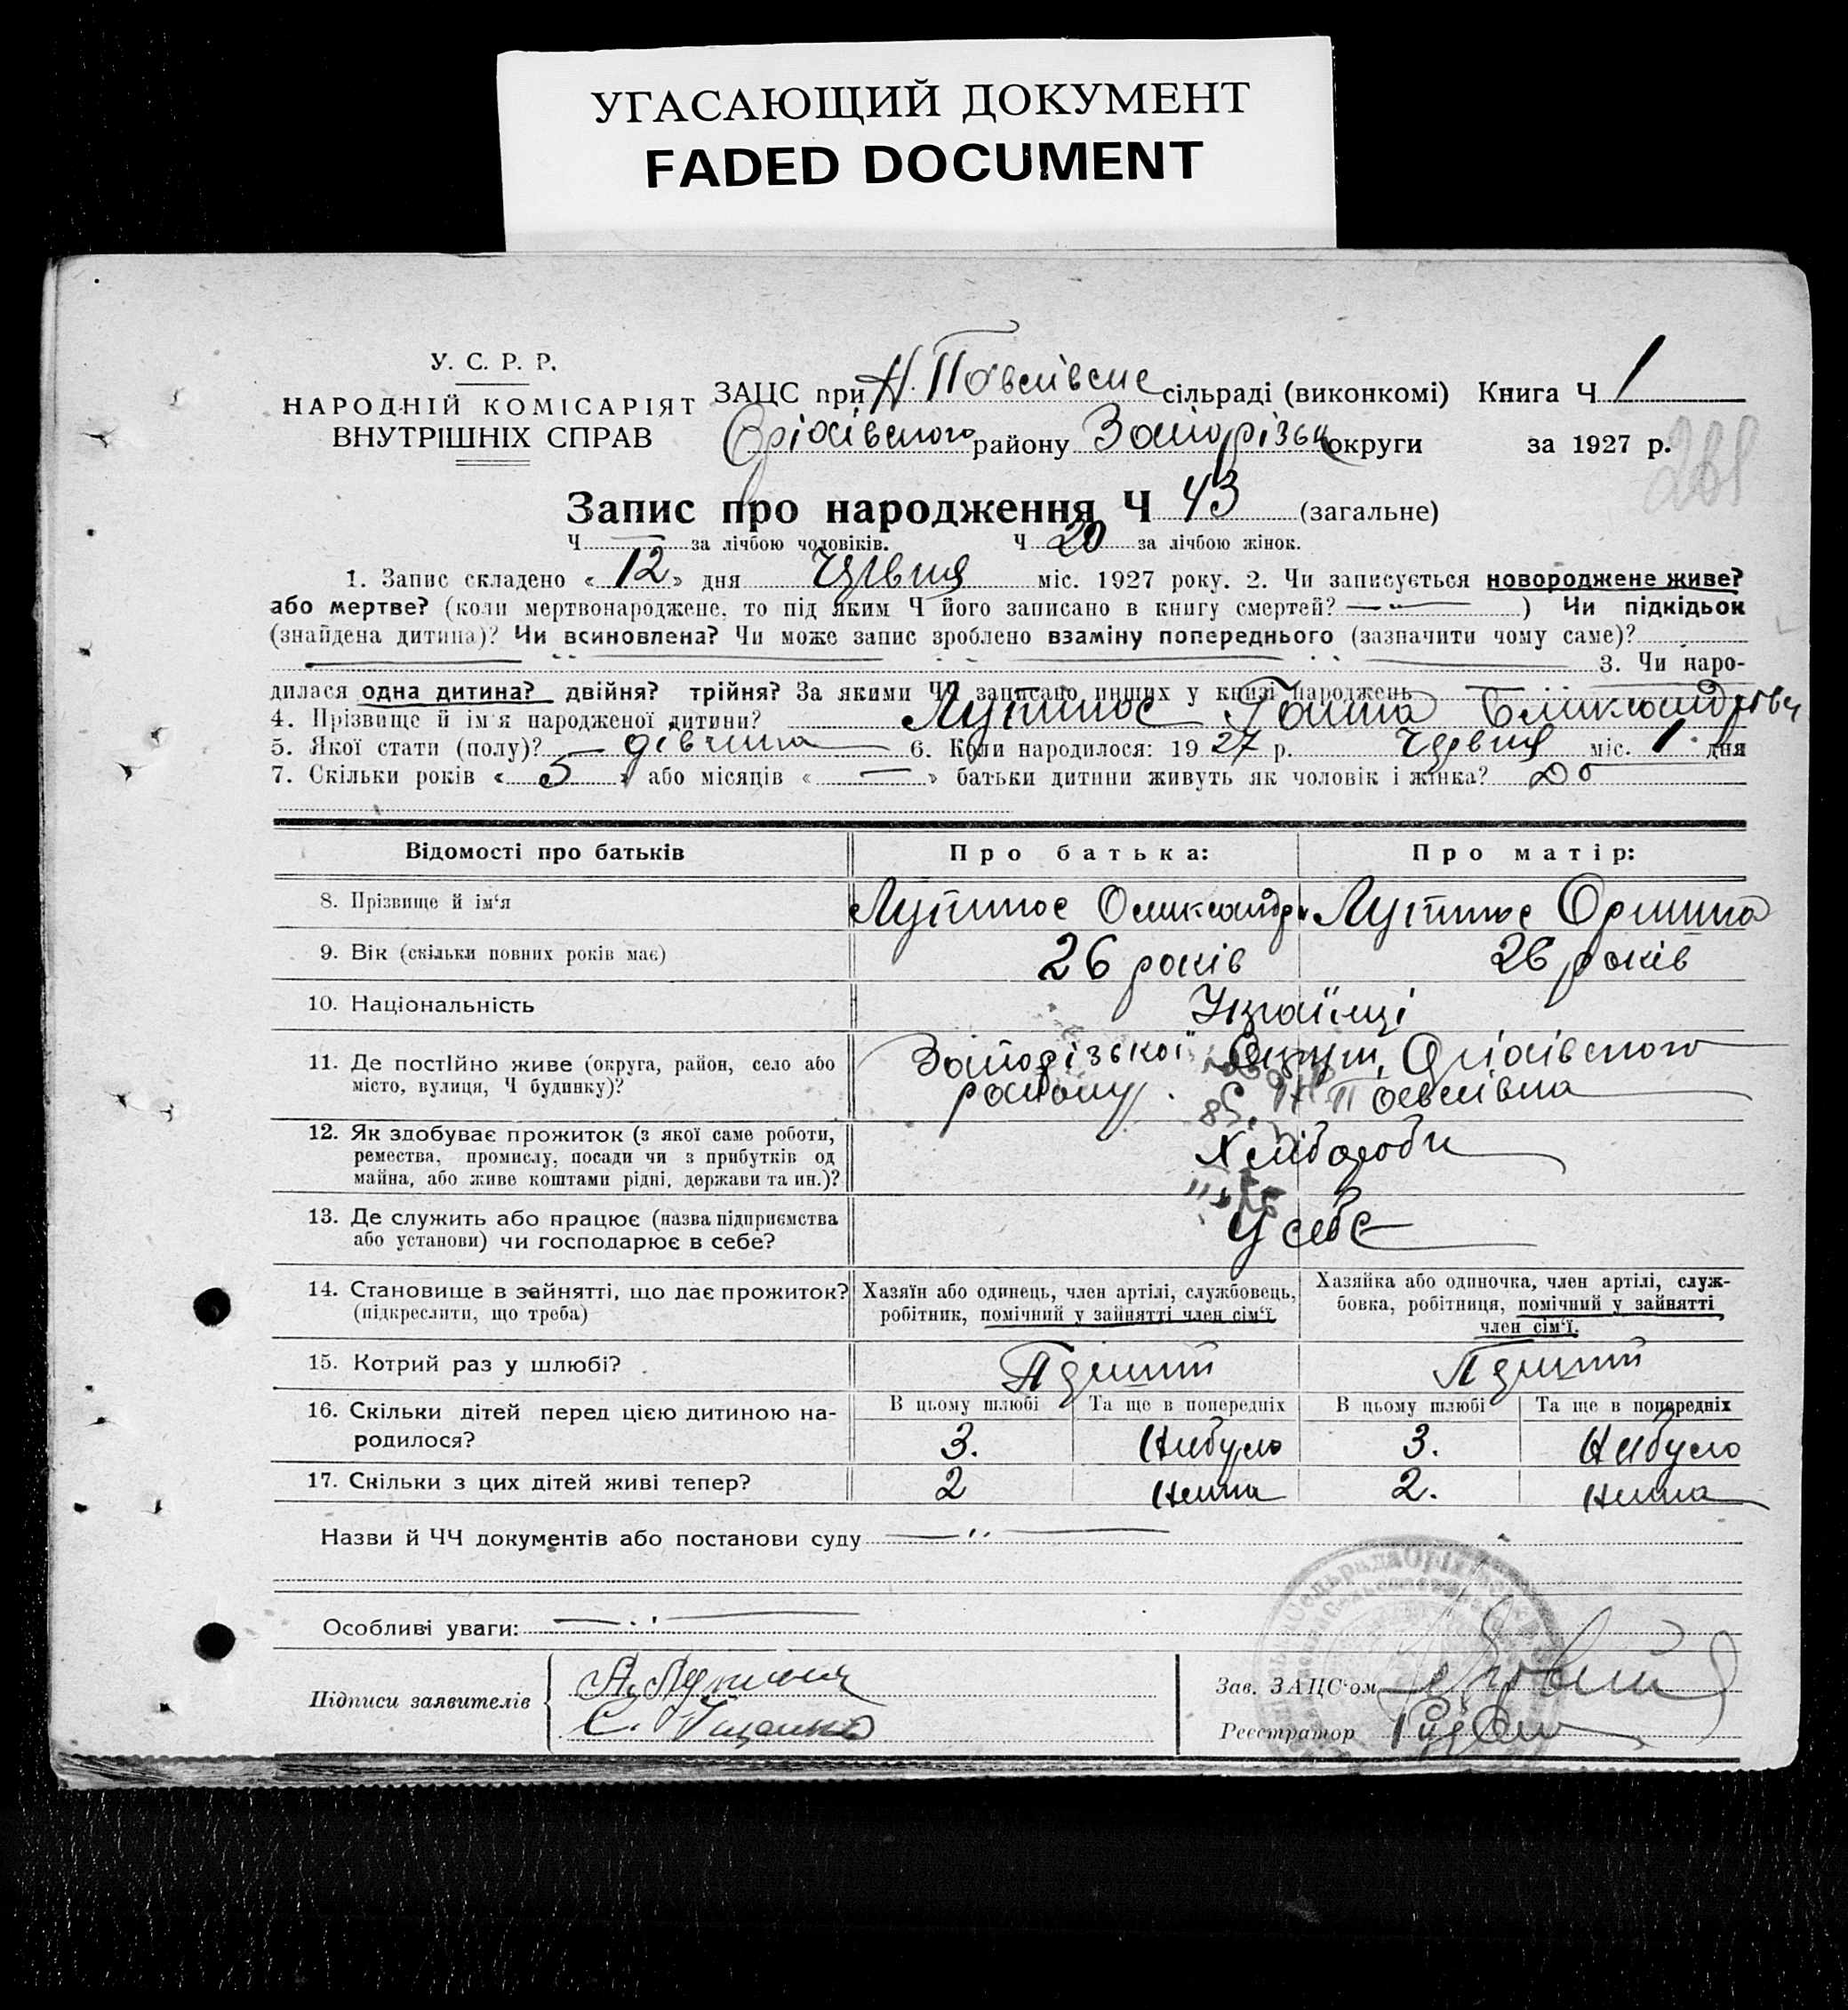 УГАСАЮЩИЙ ДОКУМЕНТ
FADED DOCUMENT
У. С. Р. Р.
НАРОДНІЙ КОМІСАРІЯТ
ВНУТРІШНІХ СПРАВ
ЗАЦС при Н. Павлівське сільраді (виконкомі) Книга Ч 1
Оріхівського району Запорізьк округи за 1927 р.
Запис про народження Ч 43 (загальне)
Ч — за лічбою чоловіків. Ч 20 за лічбою жінок.
1. Запис складено «12» дня Червня міс. 1927 року. 2. Чи записується новороджене живе?
або мертве? (коли мертвонароджене, то під яким Ч його записано в книгу смертей? — „ — ) Чи підкідьок
(знайдена дитина)? Чи всиновлена? Чи може запис зроблено взаміну попереднього (зазначити чому саме)?
3. Чи наро-
дилася одна дитина? двійня? трійня? За якими ЧЧ записано инших у книзі народжень
4. Прізвище й ім'я народженої дитини? Ганна
5. Якої стати (полу)? — дівчина — 6. Коли народилося: 1927 р. Червня міс. 1 дня
7. Скільки років «5» або місяців «—» батьки дитини живуть як чоловік і жінка?
Відомості про батьків
Про батька:
Про матір:
8. Прізвище й ім'я
Олександр
9. Вік (скільки повних років має)
26 років
26 років
10. Національність
Українці
11. Де постійно живе (округа, район, село або
місто, вулиця, Ч будинку)?
Запорізької Округи, Оріхівського
району. с. Н Павлівка
12. Як здобуває прожиток (з якої саме роботи,
ремества, промислу, посади чи з прибутків од
майна, або живе коштами рідні, держави та ин.)?
Хлібороби
13. Де служить або працює (назва підприємства
або установи) чи господарює в себе?
У себе
14. Становище в зайнятті, що дає прожиток?
(підкреслити, що треба)
Хазяїн або одинець, член артілі, службовець,
робітник, помічний у зайнятті член сім'ї
Хазяйка або одиночка, член артілі, служ-
бовка, робітниця, помічний у зайнятті
член сім'ї.
15. Котрий раз у шлюбі?
16. Скільки дітей перед цією дитиною на-
родилося?
В цьому шлюбі
Та ще в попередніх
В цьому шлюбі
Та ще в попередніх
3.
Небуло
3.
Небуло
17. Скільки з цих дітей живі тепер?
2
Нема
2.
Нема
Назви й ЧЧ документів або постанови суду — „ —
Особливі уваги:
Підписи заявителів
Зав. ЗАЦС'ом
Реєстратор